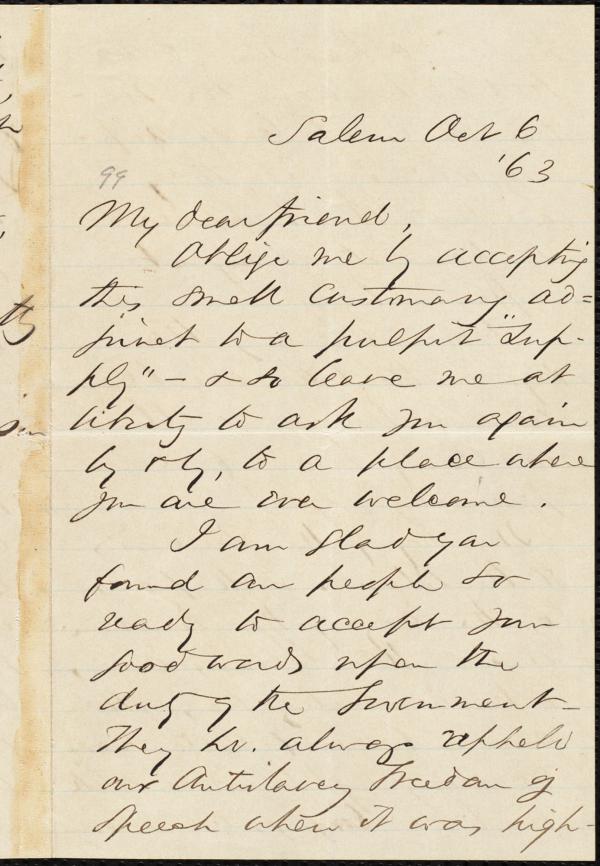 Salem Oct 6
'63
99
My dear friend,
Oblige me by accepting
this small customary ad=
junct to a pulpit "Sup-
ply" - & so leave me at
liberty to ask you again
by & by, to a place where
you are ever welcome.
I am glad you
found our people so
ready to accept your
good words upon the
duty of the Government-
They hv. always upheld
our Antislavery Freedom of
Speech when it was high-